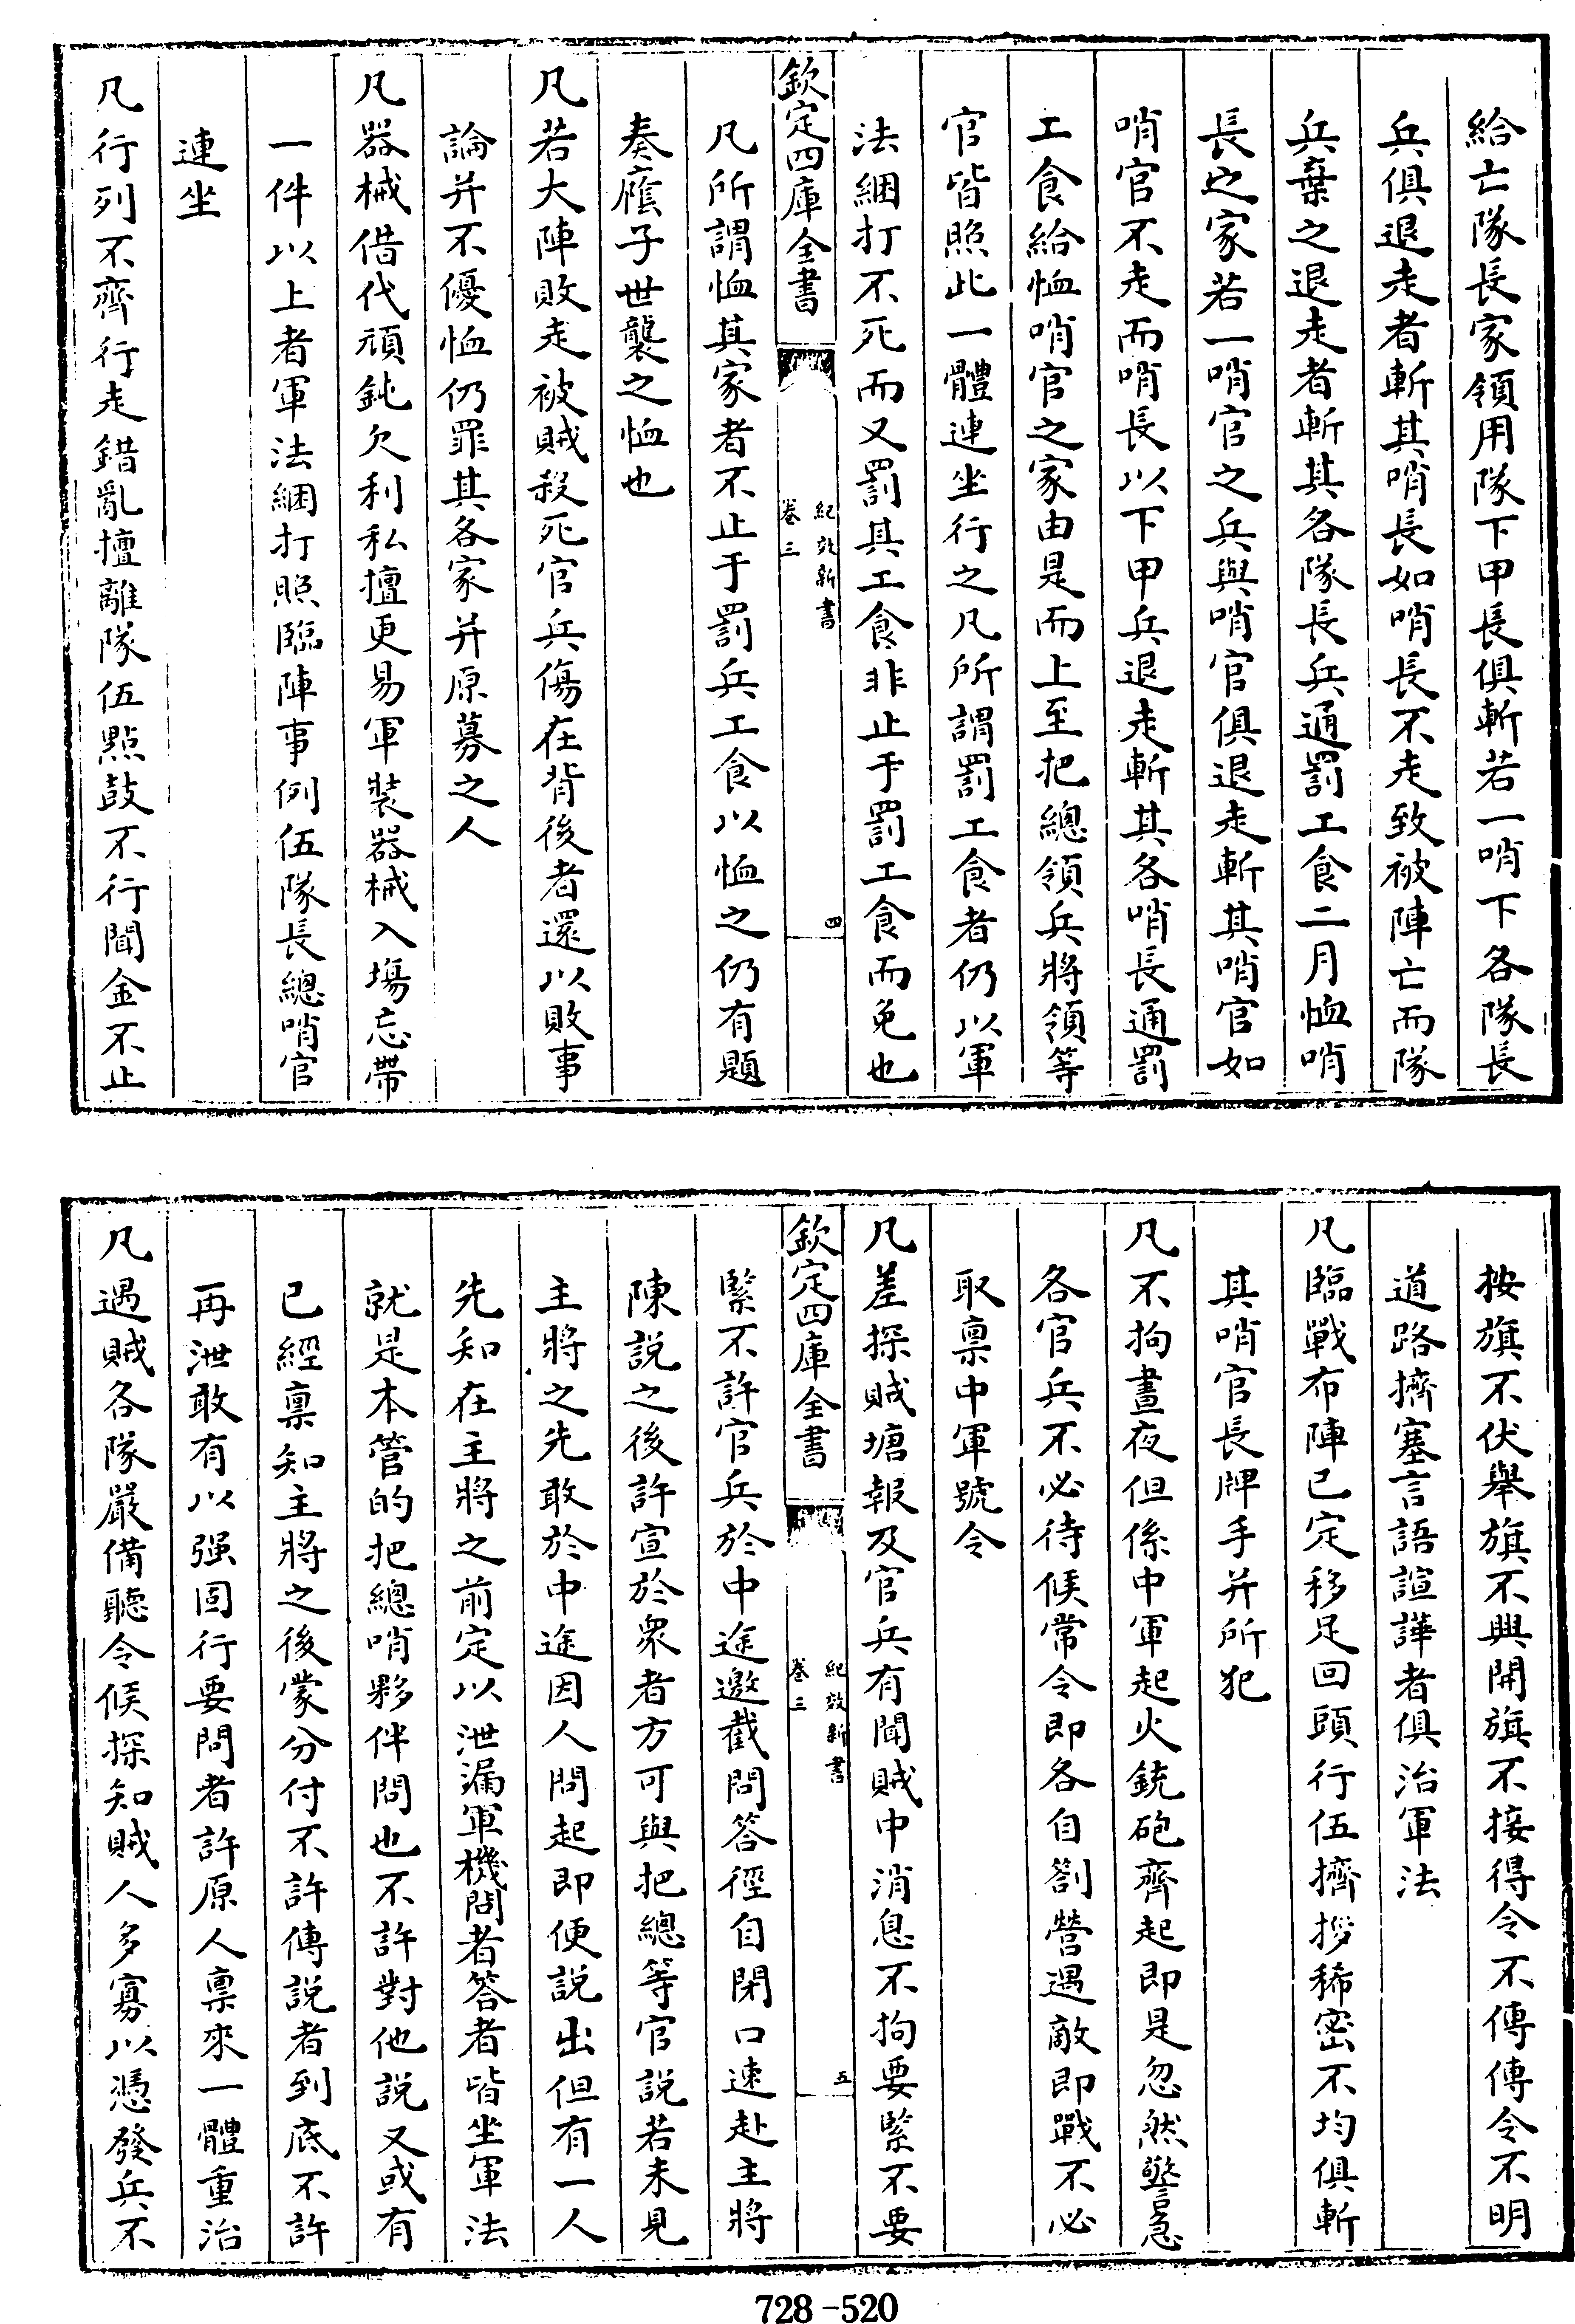 給亡隊長家領用隊下甲長俱斬若一哨下各隊長
兵俱退走者斬其哨長如哨長不走致被陣亡而隊
兵棄之退走者斬其各隊長兵通罰工食二月恤哨
長之家若一哨官之兵與哨官俱退走斬其哨官如
哨官不走而哨長以下甲兵退走斬其各哨長通罰
工食給恤哨官之家由是而上至把總領兵將領等
官皆照此一體連坐行之凡所謂罰工食者仍以軍
法綑打不死而又罰其工食非止于罰工食而免也
欽定四庫全書
紀效新書
卷三
四
凡所謂恤其家者不止于罰兵工食以恤之仍有題
奏廕子世襲之恤也
凡若大陣敗走被賊殺死官兵傷在背後者還以敗事
論并不優恤仍罪其各家并原募之人
凡器械借代頑鈍欠利私擅更易軍裝器械入塲忘帶
一件以上者軍法綑打照臨陣事例伍隊長總哨官
連坐
凡行列不齊行走錯亂擅離隊伍點鼓不行聞金不止
按旗不伏舉旗不興開旗不接得令不傳傳令不明
道路擠塞言語諠譁者俱治軍法
凡臨戰布陣已定移足回頭行伍擠拶稀密不均俱斬
其哨官長牌手并所犯
凡不拘晝夜但係中軍起火銃砲齊起即是忽然警急
各官兵不必待候常令即各自劄營遇敵即戰不必
取稟中軍號令
凡差探賊塘報及官兵有聞賊中消息不拘要緊不要
欽定四庫全書
紀效新書
卷三
五
緊不許官兵於中途邀截問答徑自閉口速赴主將
陳說之後許宣於衆者方可與把總等官說若未見
主將之先敢於中途因人問起即便說出但有一人
先知在主將之前定以泄漏軍機問者答者皆坐軍法
就是本管的把總哨夥伴問也不許對他說又或有
已經稟知主將之後蒙分付不許傳說者到底不許
再泄敢有以强固行要問者許原人稟來一體重治
凡遇賊各隊嚴備聽令候探知賊人多寡以憑發兵不
728-520